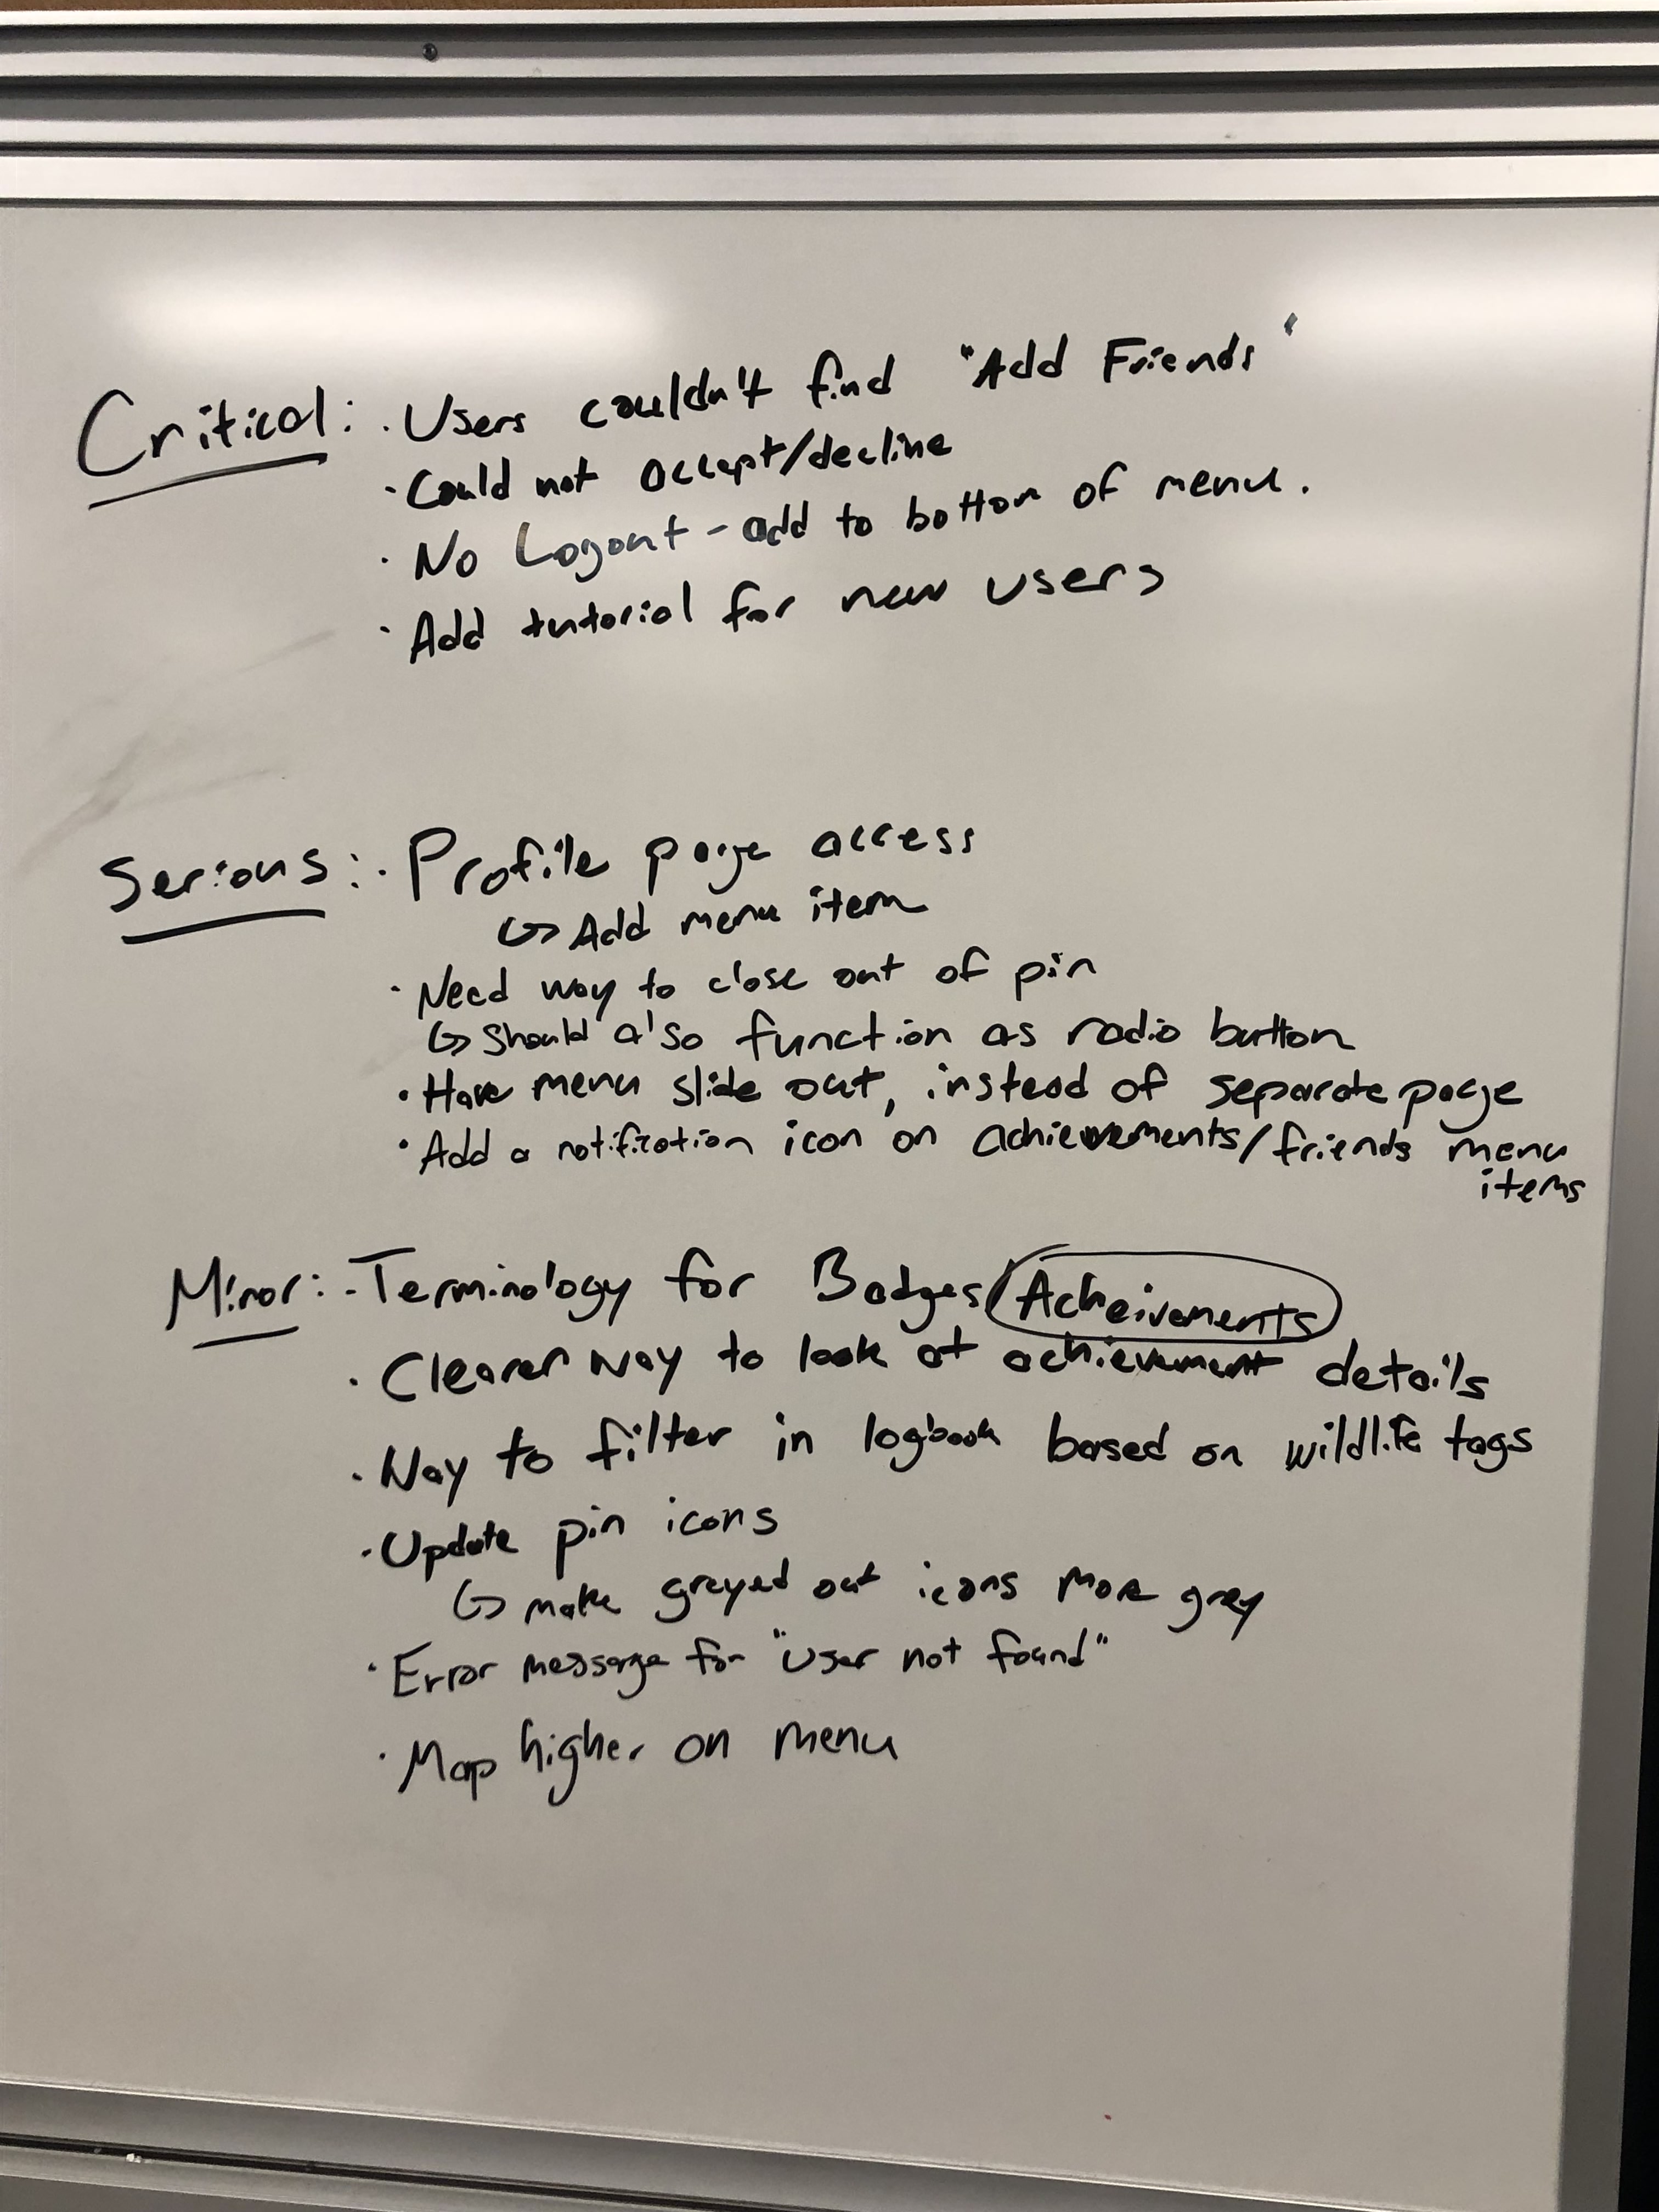 Critical: · Users couldn't find "Add Friends"
· Could not accept/decline
· No Logout - add to bottom of menu.
· Add tutorial for new users
Serious: · Profile page access
↳ Add menu item
· Need way to close out of pin
↳ Should also function as radio button
· Have menu slide out, instead of separate page
· Add a notification icon on achievements/friends menu
items
Minor: - Terminology for Badges/Acheivements
· Clearer way to look at achievement details
· Way to filter in logbook based on wildlife tags
· Update pin icons
↳ make greyed out icons more grey
· Error message for "User not found"
· Map higher on menu